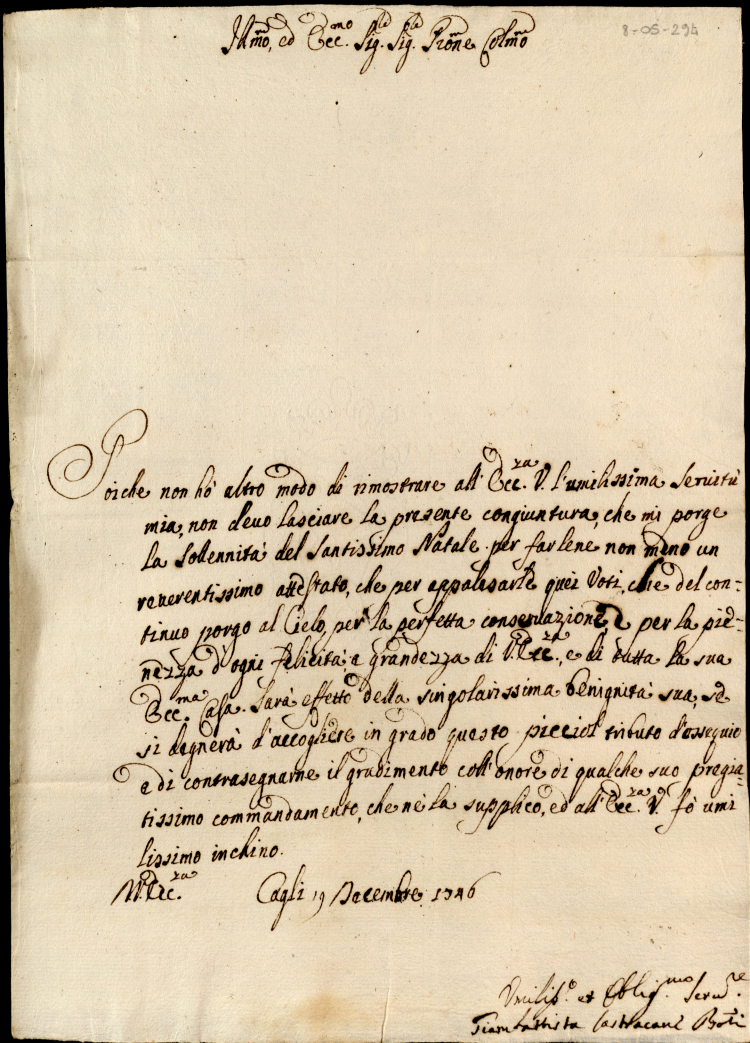 8-05-294
Ill.mo, ed Ecc.mo Sig. Sig. P.rone Colmo
Poiche non hò altro modo di rimostrare all'Ecc.za V. l'umilissima servitù
mia, non devo lasciare la presente congiuntura, che mi porge
la solennità del Santissimo Natale per farlene non meno un
reverentissimo attestato, che per appalesarle quei Voti, che del con-
tinuo porgo al Cielo, per la perfetta conservazione, e per la pie-
nezza d'ogni felicità, e grandezza di V. Ecc.za, e di tutta la sua
Ecc.ma Casa. Sarà effetto della singolarissima benignità sua, se
si degnerà d'accogliere in grado questo picciol tributo d'ossequio
e di contrasegnarne il gradimento coll'onore di qualche suo pregia-
tissimo commandamento, che nè la supplico, ed all'Ecc.za V. fò umi
lissimo inchino.
V. Ecc.za Cagli 19 Decembre 1746
Umiliss.o et Oblig.mo Serv.re
Giambattista Castracani